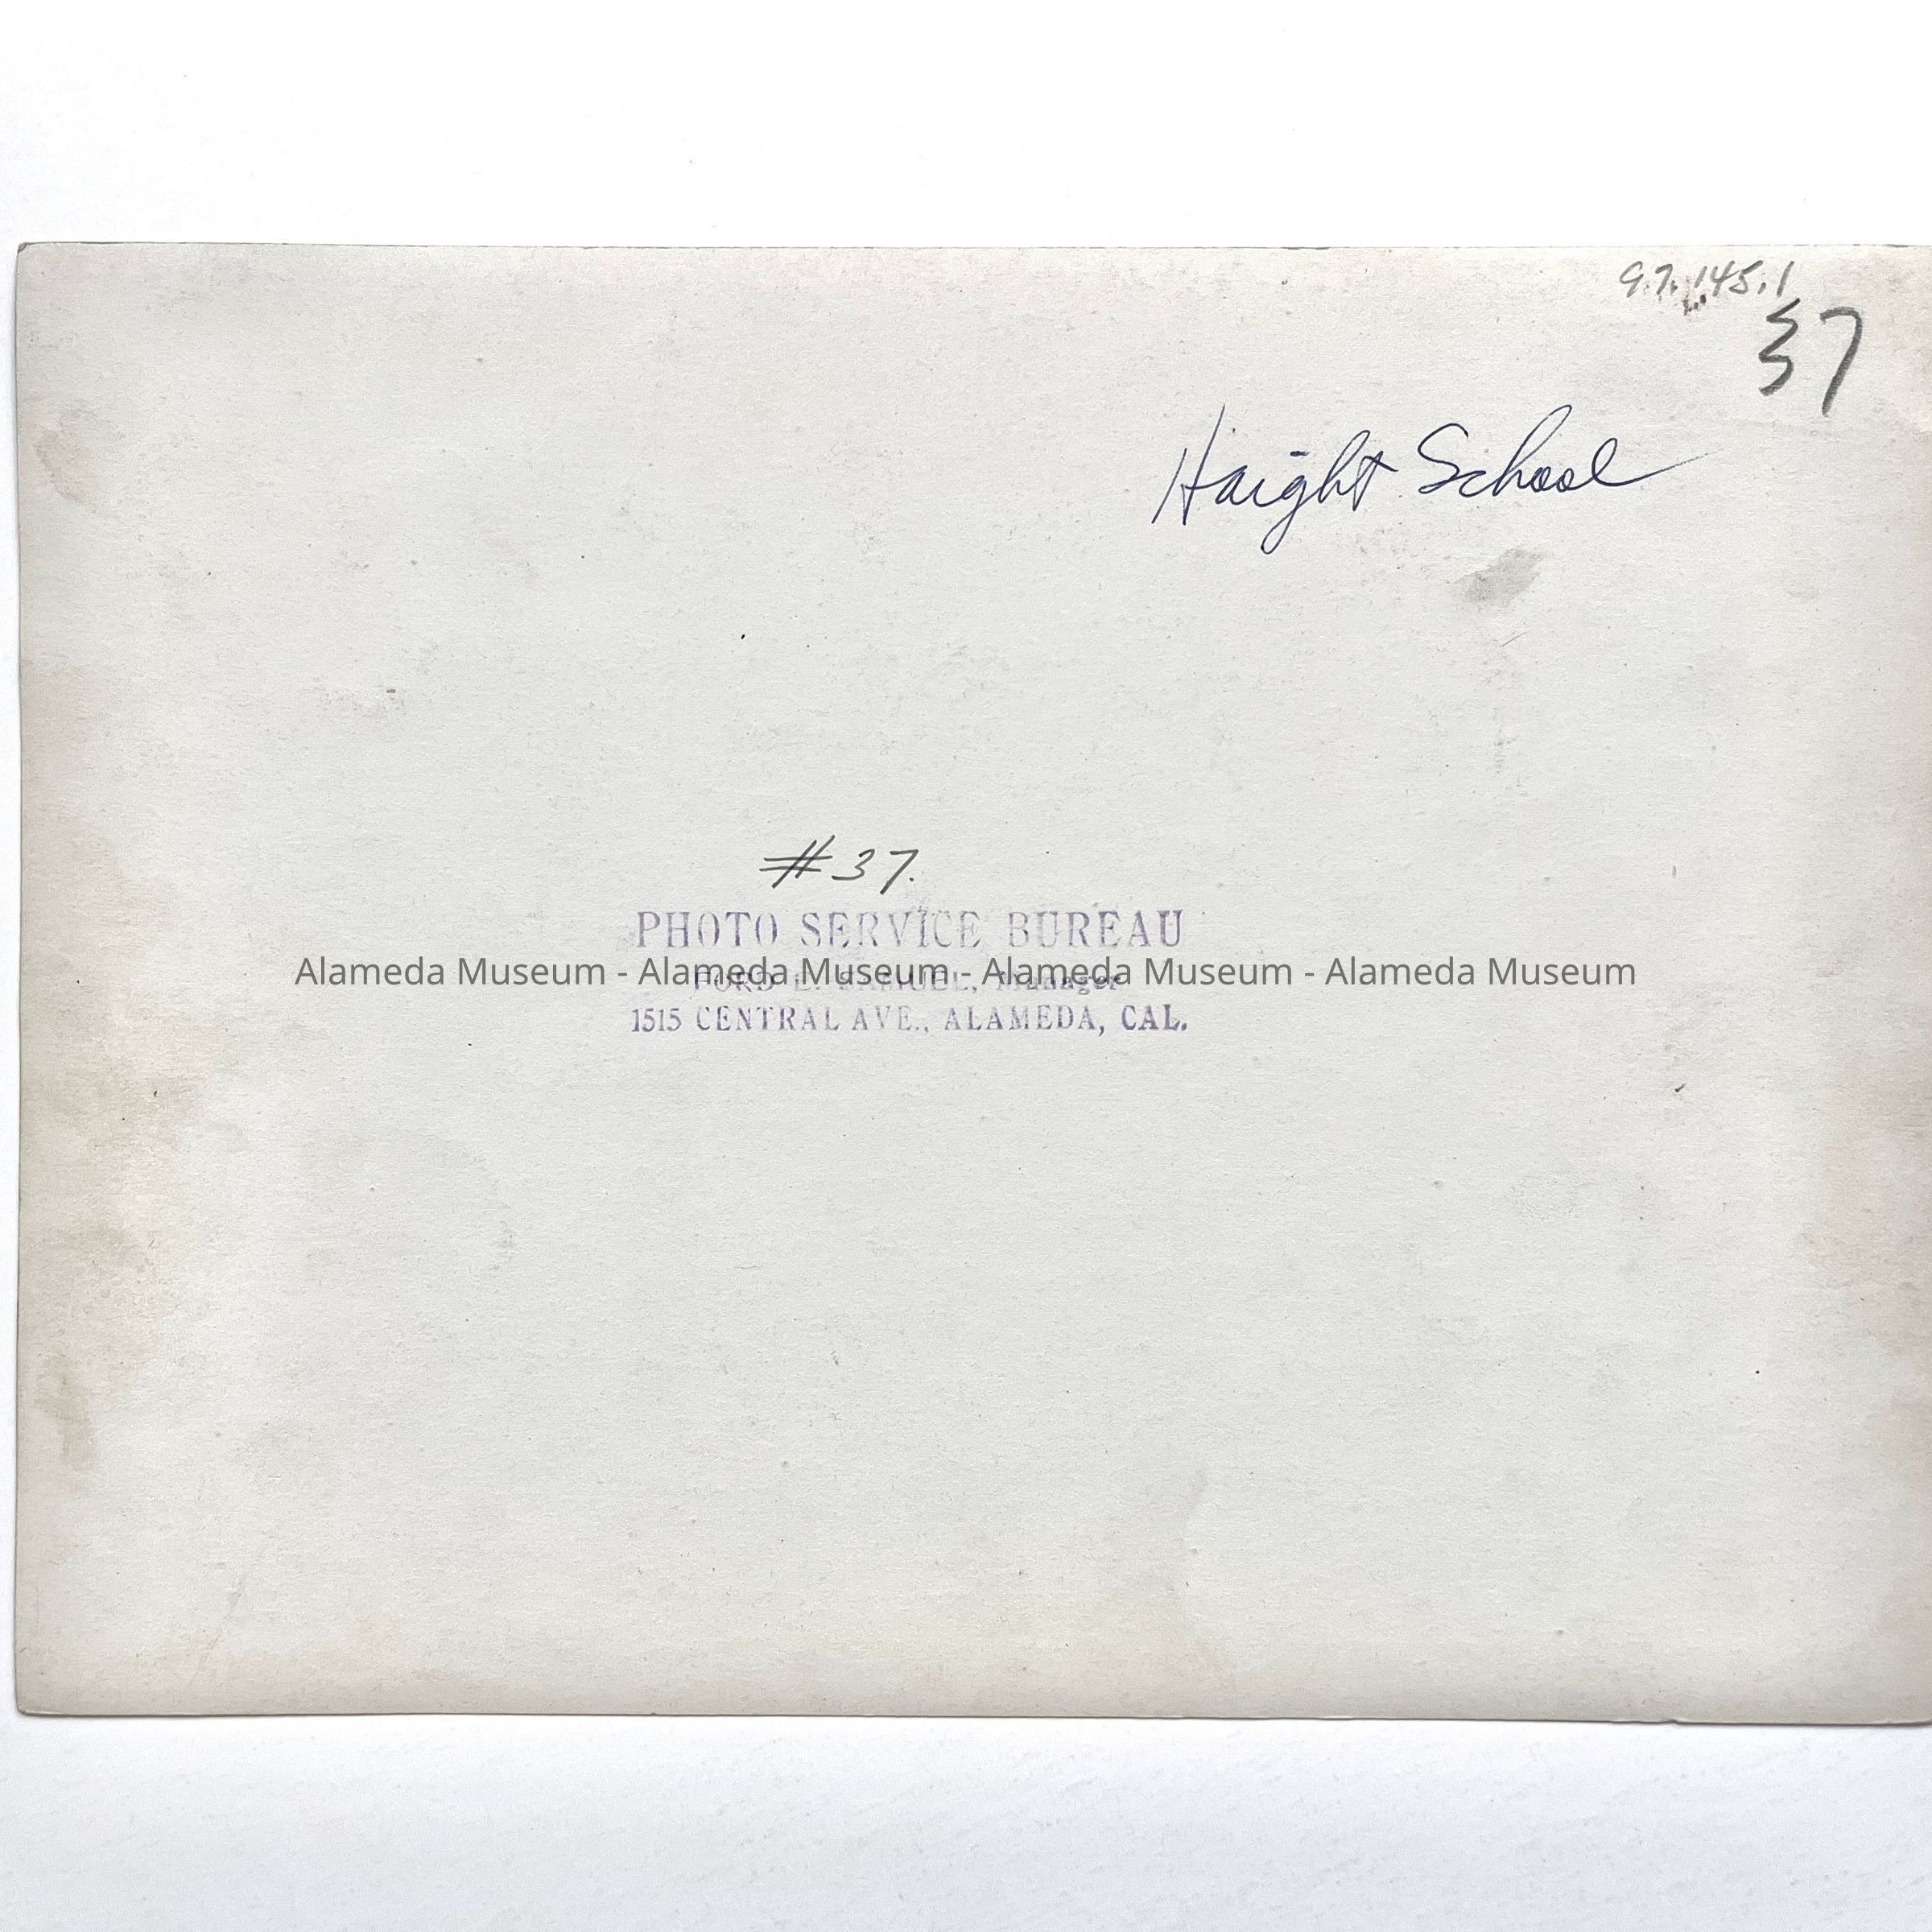 97.145.1
37
Haight School
#37.
PHOTO SERVICE BUREAU
Alameda Museum - Alameda Museum - Alameda Museum - Alameda Museum
FORD E. SAMUEL, Manager
1515 CENTRAL AVE., ALAMEDA, CAL.